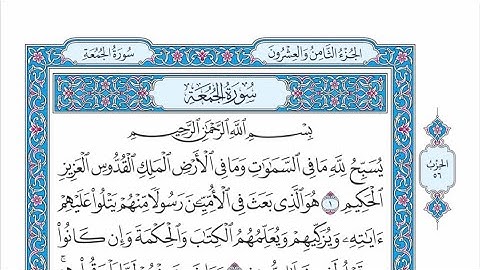 الجُزءُ الثَّامِنُ وَالعِشْرُونَ
سُورَةُ الجُمُعَةِ
سُورَةُ الجُمُعَةِ
بِسْمِ اللَّهِ الرَّحْمَٰنِ الرَّحِيمِ
يُسَبِّحُ لِلَّهِ مَا فِي السَّمَٰوَٰتِ وَمَا فِي الْأَرْضِ الْمَلِكِ الْقُدُّوسِ الْعَزِيزِ
الْحَكِيمِ ١ هُوَ الَّذِي بَعَثَ فِي الْأُمِّيِّـۧنَ رَسُولًا مِّنْهُمْ يَتْلُوا۟ عَلَيْهِمْ
ءَايَٰتِهِۦ وَيُزَكِّيهِمْ وَيُعَلِّمُهُمُ الْكِتَٰبَ وَالْحِكْمَةَ وَإِن كَانُوا۟
الحِزْبُ
٥٦